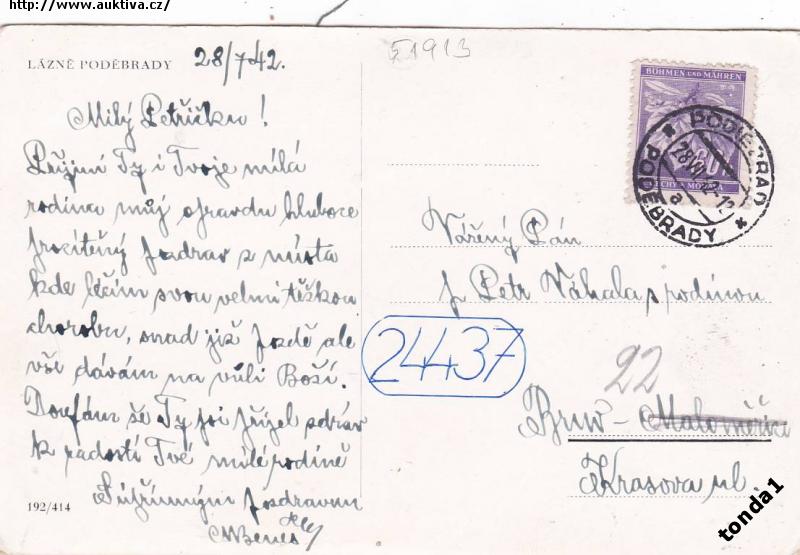 http://www.auktiva.cz/
LÁZNĚ PODĚBRADY
28/7 42.
F1913
Milý Petříčku!
Přijmi Ty i Tvoje milá
rodina můj opravdu hluboce
procítěný pozdrav z místa
kde léčím svou velmi těžkou
chorobu, snad již pozdě ale
vše dávám na vůli Boží.
Doufám že Ty jsi přijel zdráv
k radosti Tvé milé rodině
S upřímným pozdravem
Beneš
192/414
BÖHMEN UND MÄHREN
ČECHY A MORAVA
PODIEBRAD
PODĚBRADY
a
Vážený Pán
p. Petr Váhala s rodinou
24437
22
Brno - Maloměřice
Krasova ul.
tonda1